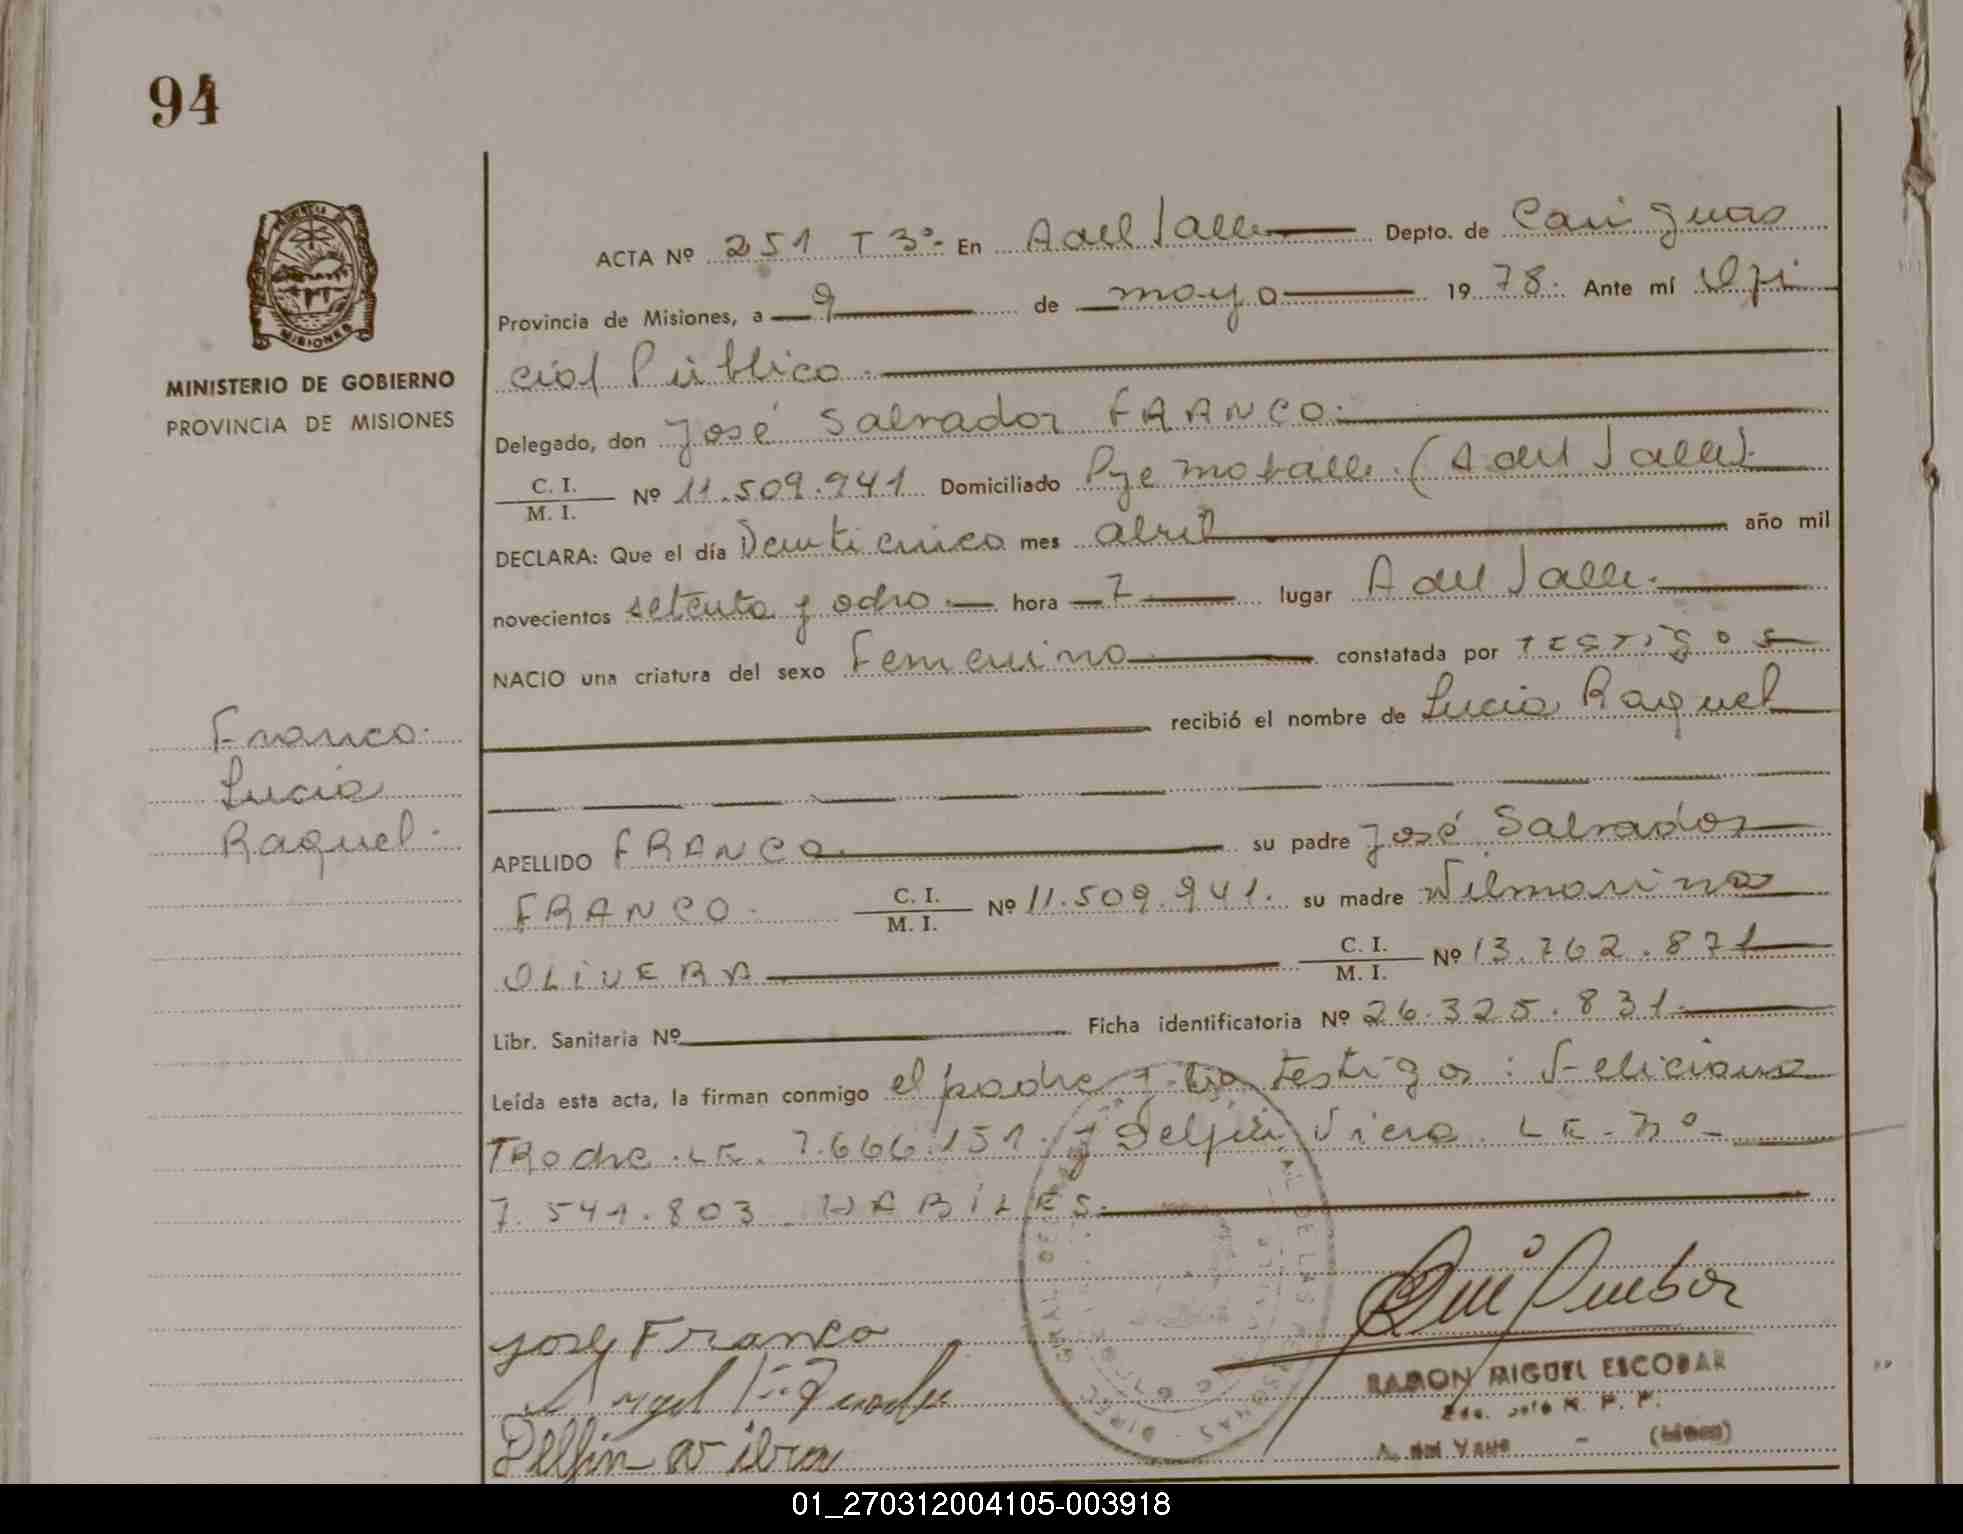 94
MINISTERIO DE GOBIERNO
PROVINCIA DE MISIONES
ACTA Nº 251 T 3º.- En A del Valle Depto. de Cainguas
Provincia de Misiones, a 9 de mayo 1978. Ante mí Ofi
cial Público.
Delegado, don José Salvador FRANCO.
C. I. / M. I. Nº 11.509.941 Domiciliado (A del Valle).
DECLARA: Que el día Veinticinco mes abril año mil
novecientos setenta y ocho. hora 7 lugar A del Valle.
NACIO una criatura del sexo Femenino constatada por TESTIGOS
recibió el nombre de Lucia Raquel
Franco.
Lucia
Raquel.
APELLIDO FRANCO. su padre José Salvador
FRANCO. C. I. / M. I. Nº 11.509.941. su madre Wilmarina
OLIVERA C. I. / M. I. Nº 13.762.871
Libr. Sanitaria Nº Ficha identificatoria Nº 26.325.831.
Leída esta acta, la firman conmigo el padre y los testigos: Feliciano
TROche. LE. 7.666.151. y Delfin Viera. LE. Nº-
7.541.803 HABILES.
José Franco
Delfin
RAMON MIGUEL ESCOBAR
A. del Valle - (Mnes)
01_270312004105-003918